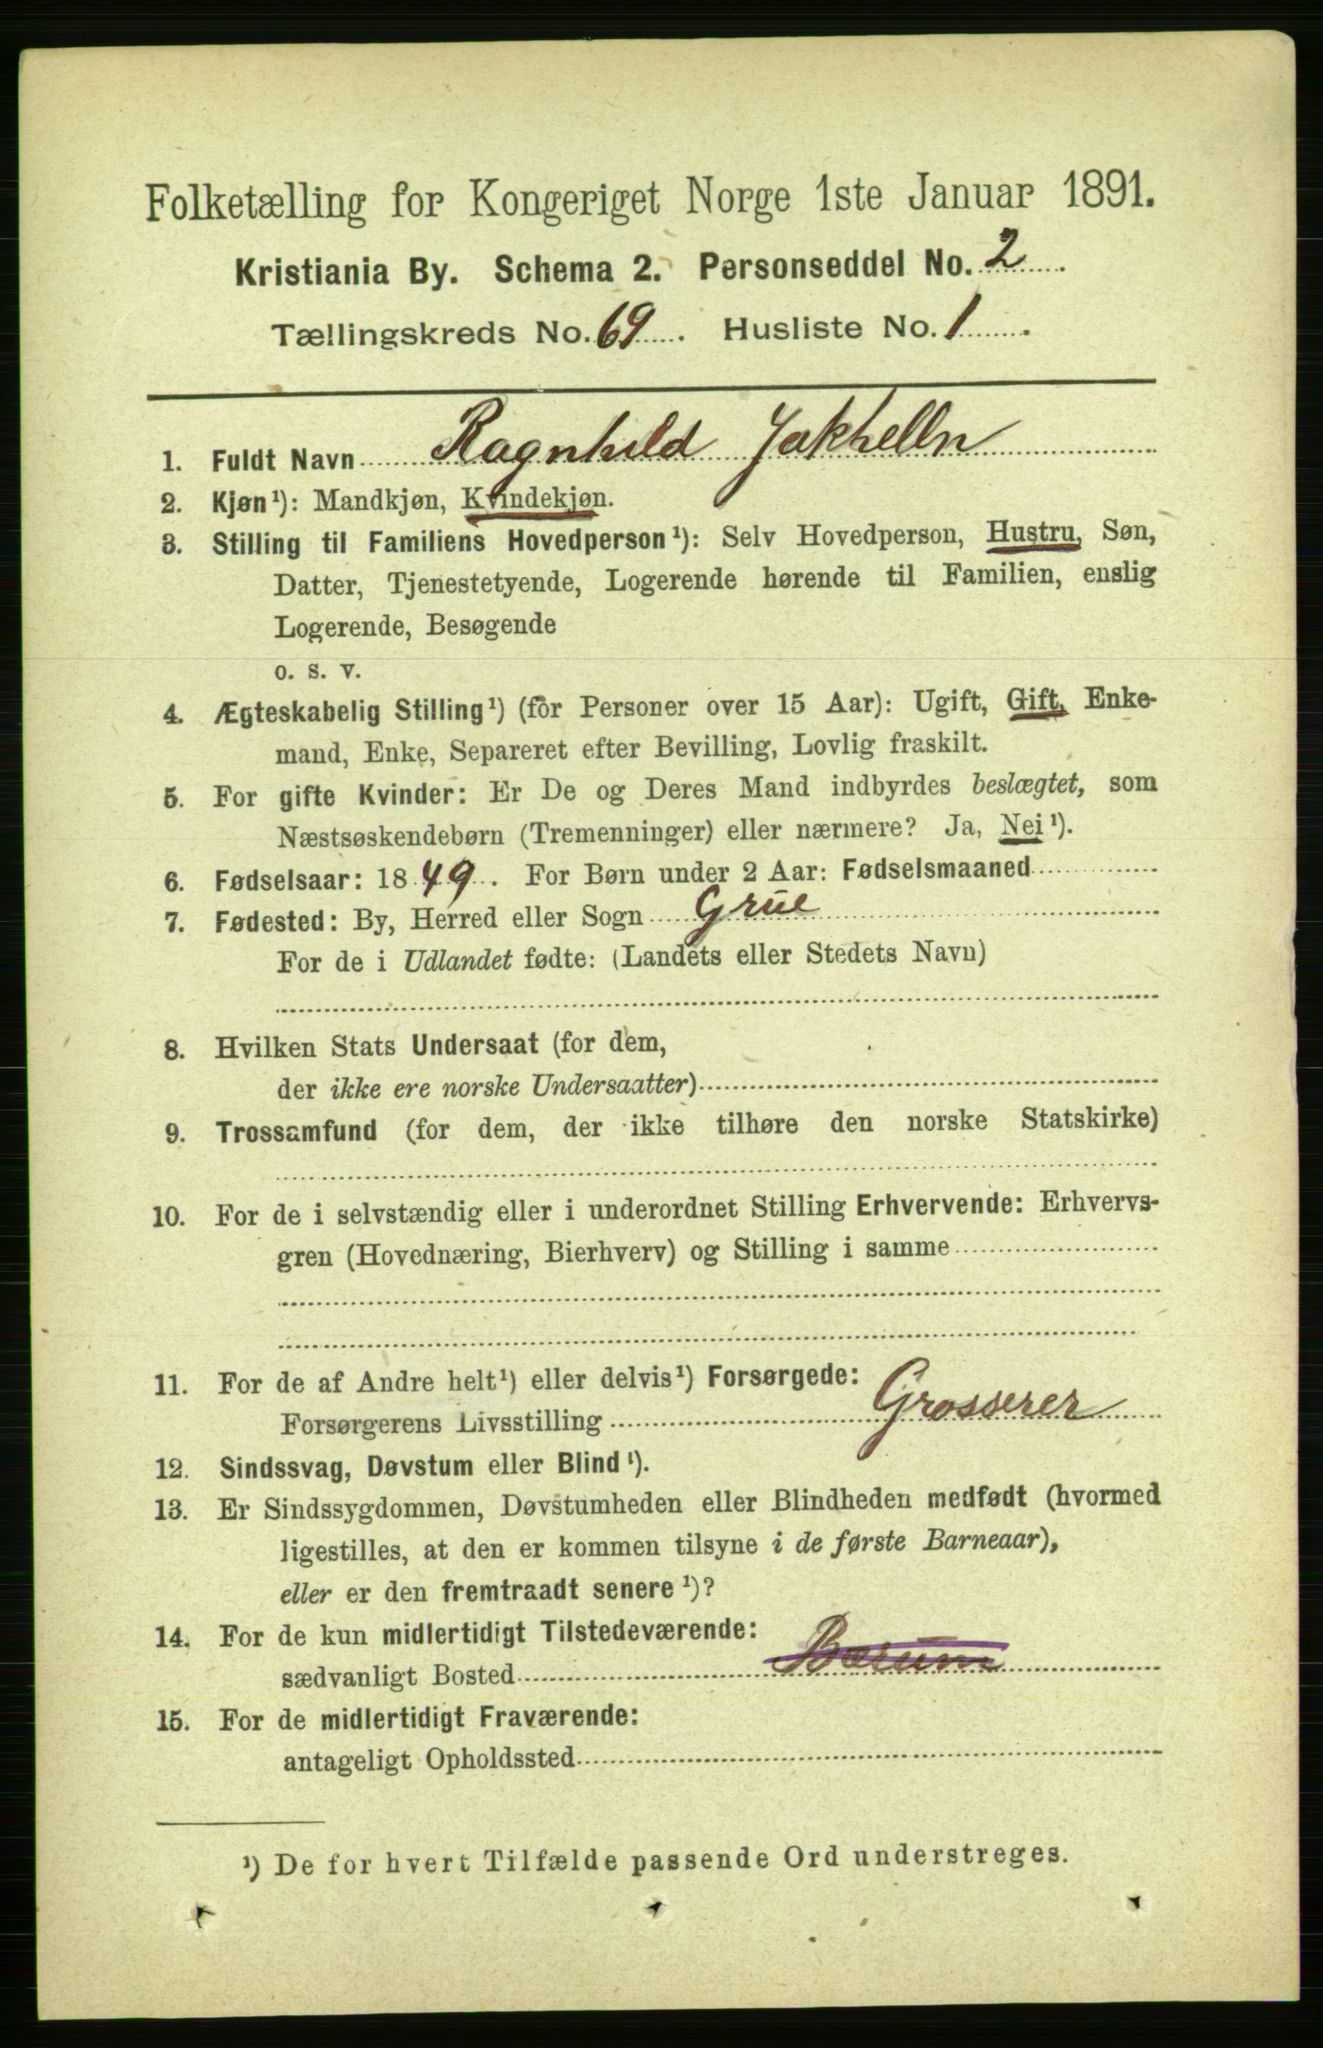 Folketælling for Kongeriget Norge 1ste Januar 1891.
Kristiania By. Schema 2. Personseddel No. 2
Tællingskreds No. 69. Husliste No. 1.
1. Fuldt Navn Ragnhild Jakhelln
2. Kjøn¹): Mandkjøn, Kvindekjøn.
3. Stilling til Familiens Hovedperson¹): Selv Hovedperson, Hustru, Søn,
Datter, Tjenestetyende, Logerende hørende til Familien, enslig
Logerende, Besøgende
o. s. v.
4. Ægteskabelig Stilling¹) (for Personer over 15 Aar): Ugift, Gift, Enke-
mand, Enke, Separeret efter Bevilling, Lovlig fraskilt.
5. For gifte Kvinder: Er De og Deres Mand indbyrdes beslægtet, som
Næstsøskendebørn (Tremenninger) eller nærmere? Ja, Nei¹).
6. Fødselsaar: 1849. For Børn under 2 Aar: Fødselsmaaned
7. Fødested: By, Herred eller Sogn Grue
For de i Udlandet fødte: (Landets eller Stedets Navn)
8. Hvilken Stats Undersaat (for dem,
der ikke ere norske Undersaatter)
9. Trossamfund (for dem, der ikke tilhøre den norske Statskirke)
10. For de i selvstændig eller i underordnet Stilling Erhvervende: Erhvervs-
gren (Hovednæring, Bierhverv) og Stilling i samme
11. For de af Andre helt¹) eller delvis¹) Forsørgede:
Forsørgerens Livsstilling Grosserer
12. Sindssvag, Døvstum eller Blind¹).
13. Er Sindssygdommen, Døvstumheden eller Blindheden medfødt (hvormed
ligestilles, at den er kommen tilsyne i de første Barneaar),
eller er den fremtraadt senere¹)?
14. For de kun midlertidigt Tilstedeværende:
sædvanligt Bosted Bærum
15. For de midlertidigt Fraværende:
antageligt Opholdssted
¹) De for hvert Tilfælde passende Ord understreges.